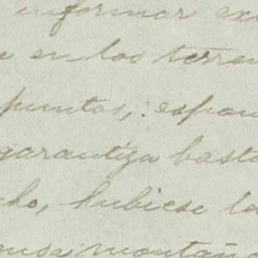 informar ex
e en los terren
puntos, espon
garantiza basta
cho, hubiese la
montaña